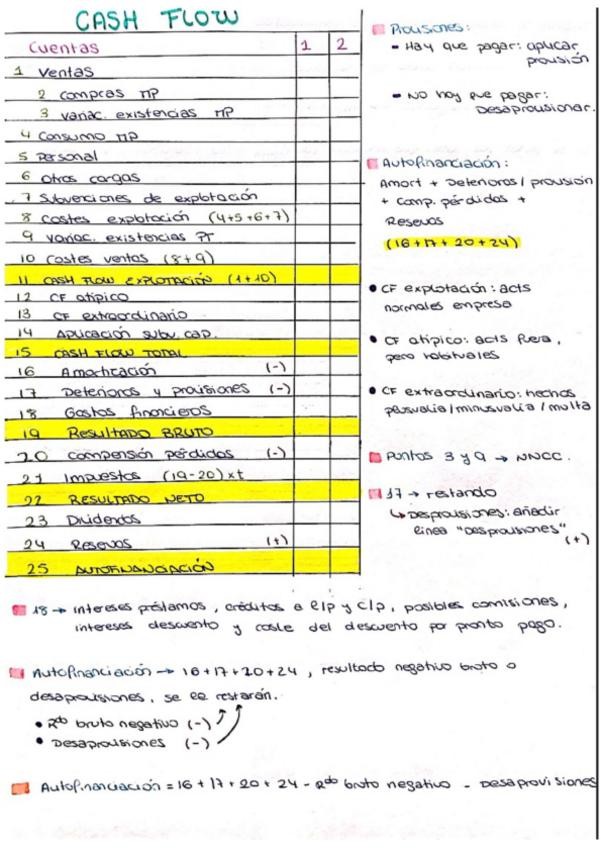 CASH FLOW
Cuentas 1 2
1 Ventas
2 compras MP
3 variac. existencias MP
4 Consumo MP
5 Personal
6 Otras cargas
7 Subvenciones de explotación
8 Costes explotación (4+5+6+7)
9 variac. existencias PT
10 Costes ventas (8+9)
11 CASH FLOW EXPLOTACIÓN (1+10)
12 CF atípico
13 CF extraordinario
14 Aplicación subv. cap.
15 CASH FLOW TOTAL
16 Amortización (-)
17 Deterioros y provisiones (-)
18 Gastos financieros
19 RESULTADO BRUTO
20 Compensión pérdidas (-)
21 Impuestos (19-20)xt
22 RESULTADO NETO
23 Dividendos
24 Reservas (+)
25 AUTOFINANCIACIÓN
Provisiones:
- Hay que pagar: aplicar
provisión
- NO hay que pagar:
Desaprovisionar.
Autofinanciación:
Amort + Deterioros / provisión
+ Comp. pérdidas +
Reservas
(16+17+20+24)
• CF explotación: acts
normales empresa
• CF atípico: acts fuera,
pero habituales
• CF extraordinario: hechos
plusvalía/minusvalía/multa
Puntos 3 y 9 → NNCC.
17 → restando
↳ Desprovisiones: añadir
línea "Desprovisiones"
(+)
18 → intereses préstamos, créditos a l/p y c/p, posibles comisiones,
intereses descuento y coste del descuento por pronto pago.
Autofinanciación → 16+17+20+24, resultado negativo bruto o
desaprovisiones, se le restarán.
• Rdo bruto negativo (-)
• Desaprovisiones (-)
Autofinanciación = 16 + 17 + 20 + 24 - Rdo bruto negativo - Desaprovisiones